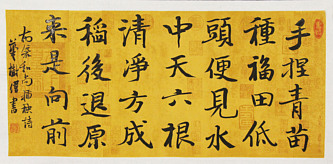 手捏青苗
種福田低
頭便見水
中天六根
清淨方成
稻後退原
來是向前
和尚插秧詩
書